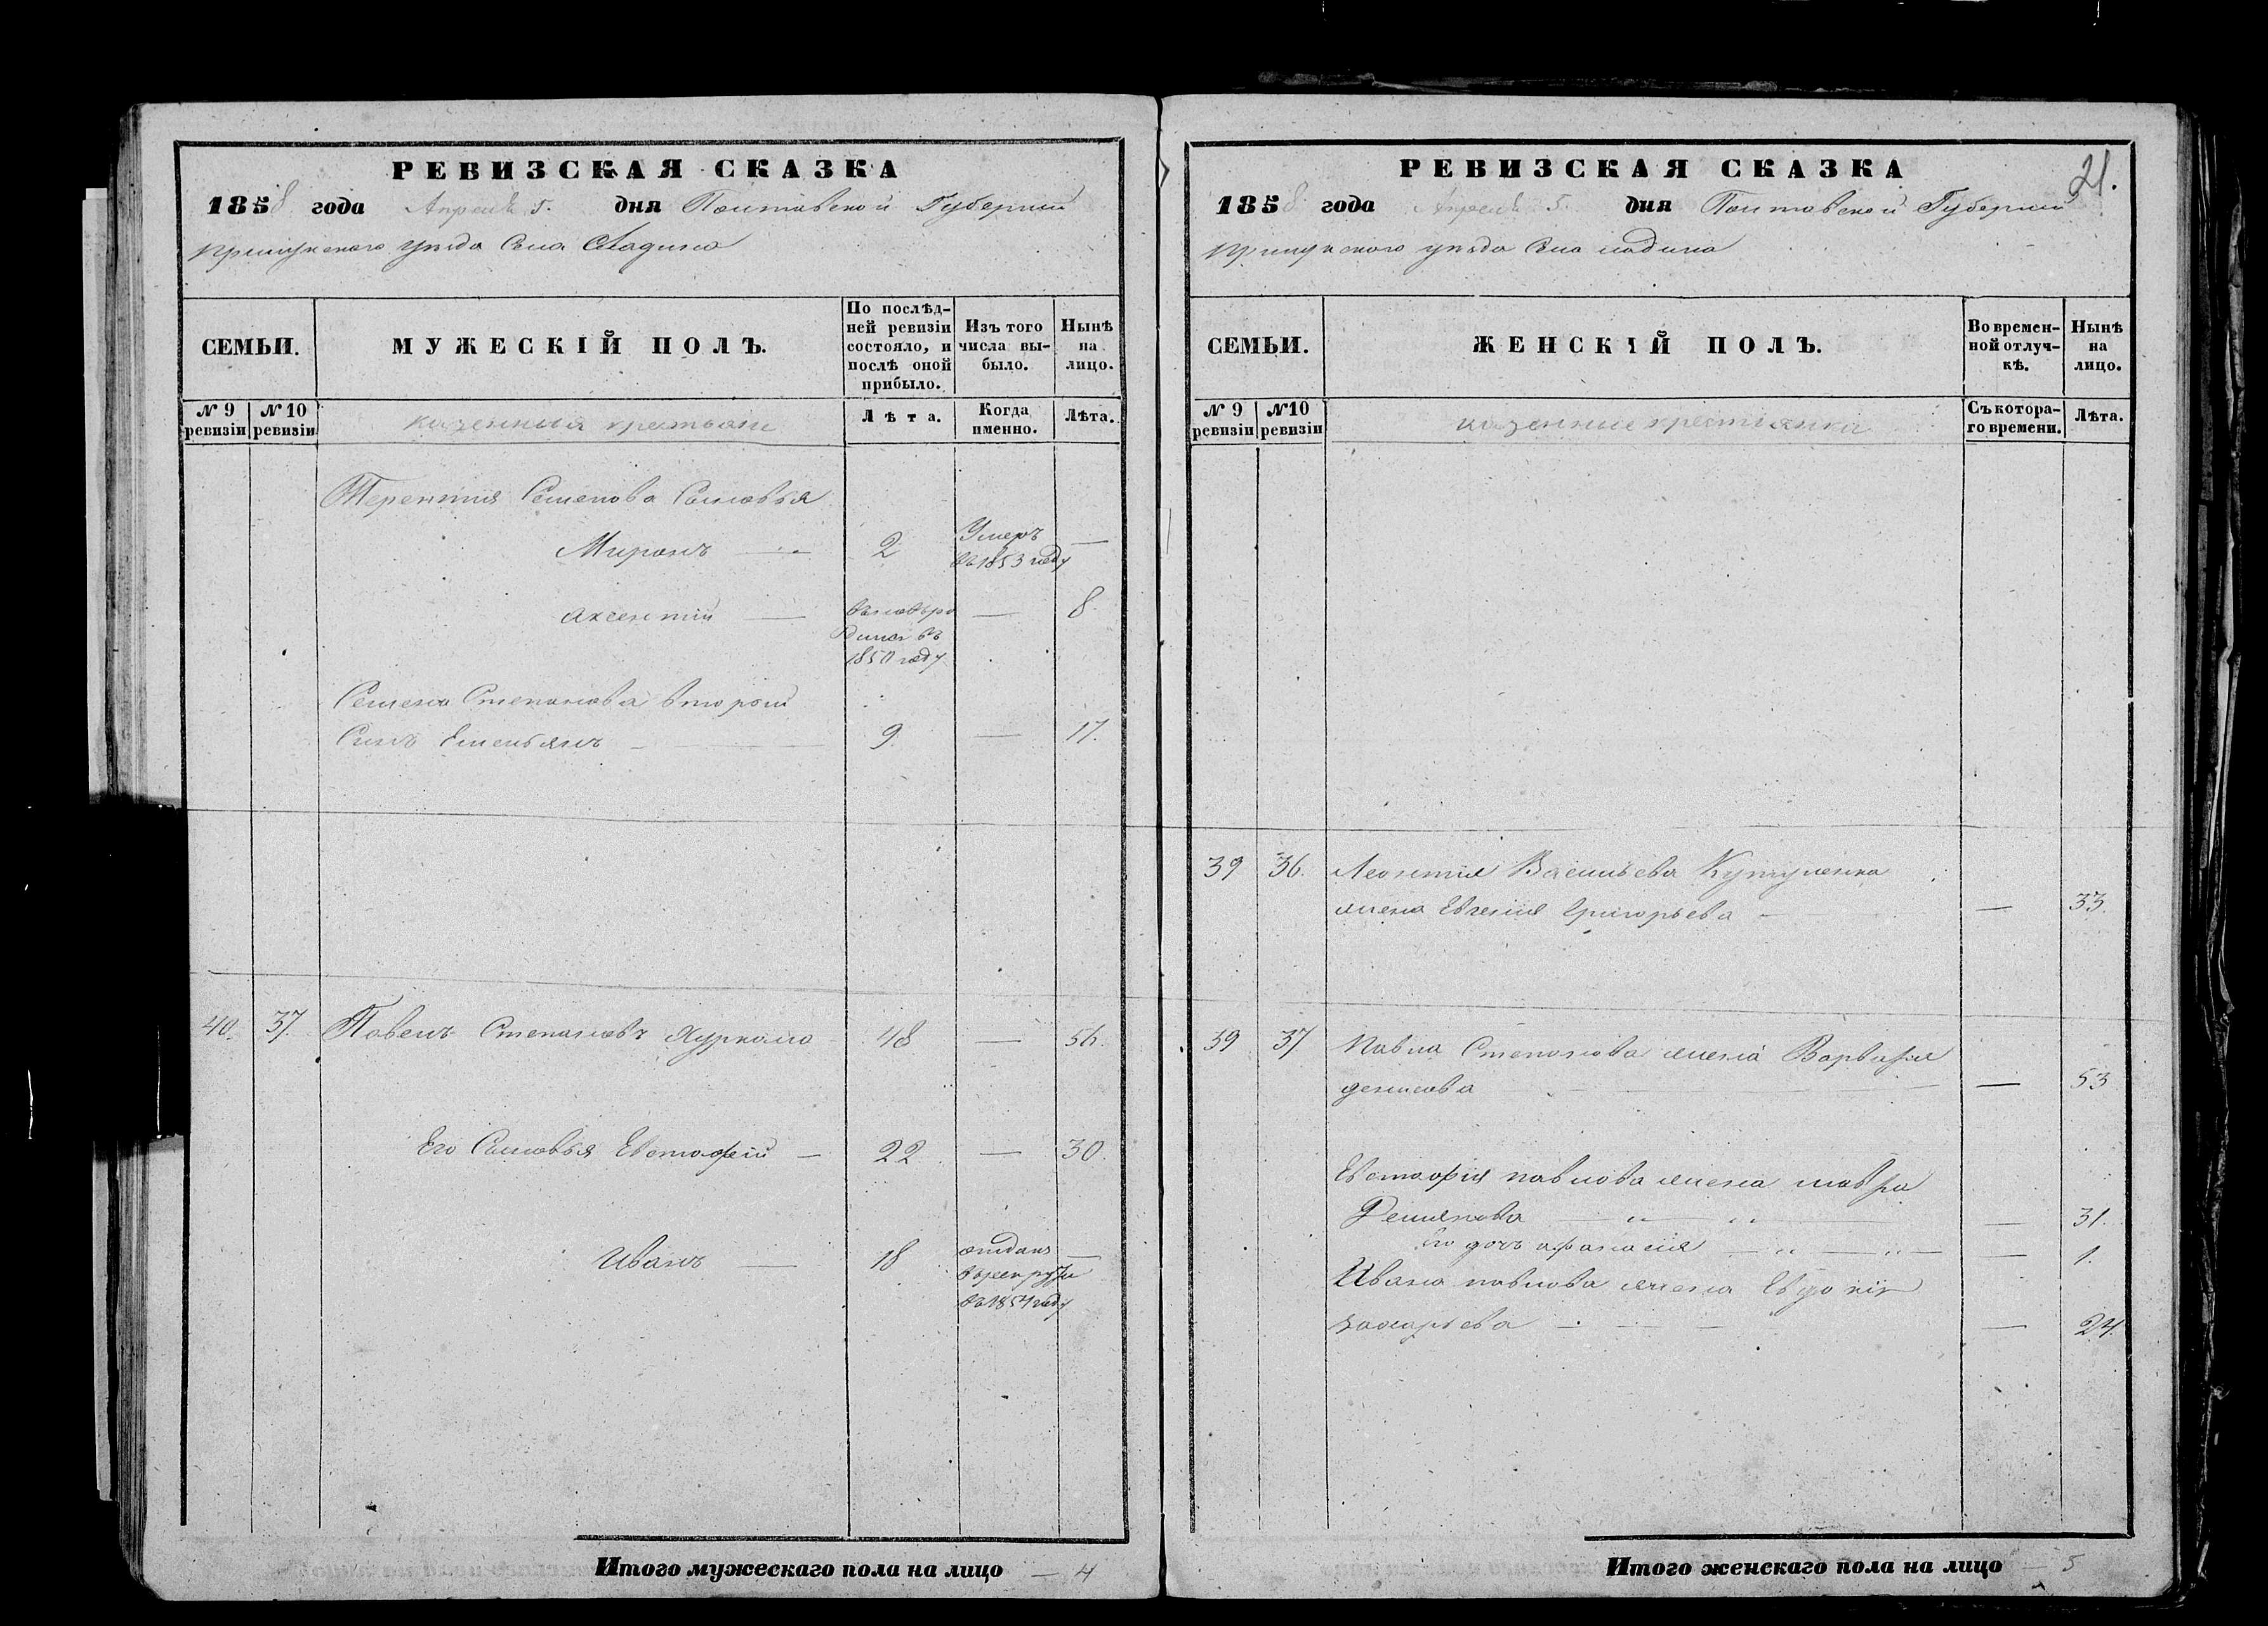 РЕВИЗСКАЯ СКАЗКА
1858 года Апреля 5. дня Полтавской Губернии
Прилукского уѣзда Села Ладина
СЕМЬИ.
МУЖЕСКІЙ ПОЛЪ.
По послѣд-
ней ревизіи
состояло, и
послѣ оной
прибыло.
Изъ того
числа вы-
было.
Нынѣ
на
лицо.
№ 9
ревизіи
№ 10
ревизіи
казенныя крестьяни
Лѣта.
Когда
именно.
Лѣта.
Терентия Семенова Сыновья
Миронъ — 2 Умеръ —
въ 1853 году
Аксентий — вновь ро — 8.
дился въ
1850 году
Семена Степанова второй
Синъ Емельянъ — 9 — 17.
40. 37. Павелъ Степановъ 48 — 56.
Его Сыновья Евстафій — 22 — 30.
Иванъ — 18 отданъ —
въ рекруты
въ 1854 году
Итого мужескаго пола на лицо — 4
21.
РЕВИЗСКАЯ СКАЗКА
1858 года Апреля 5. дня Полтавской Губернии
Прилукского уѣзда Села ладина
СЕМЬИ.
ЖЕНСКІЙ ПОЛЪ.
Во времен-
ной отлуч-
кѣ.
Нынѣ
на
лицо.
№ 9
ревизіи
№ 10
ревизіи
казенние крестиянки
Съ котора-
го времени.
Лѣта.
39 36. Леонтия Васильева
жена Евгения Григорьева — — 33.
39 37 Павла Степанова жена Варвара
денисова — — 53
Евстафия павлова жена мавра
Демянова — — 31.
его дочъ афанасия — — 1.
Ивана павлова жена Евдокия
захарьева — — 24.
Итого женскаго пола на лицо — 5